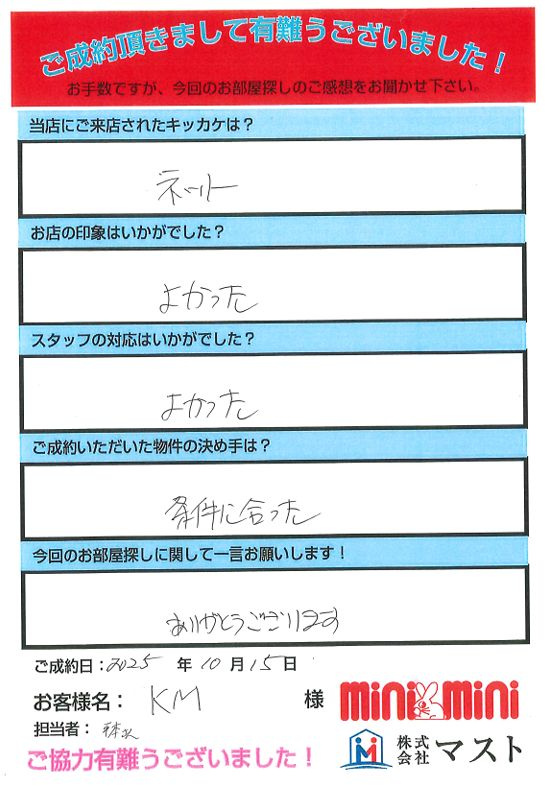 ご成約頂きまして有難うございました!
お手数ですが、今回のお部屋探しのご感想をお聞かせ下さい。
当店にご来店されたキッカケは?
ネット
お店の印象はいかがでした?
よかった
スタッフの対応はいかがでした?
よかった
ご成約いただいた物件の決め手は?
条件に合った
今回のお部屋探しに関して一言お願いします!
ありがとうございます
ご成約日: 2025 年 10 月 15 日
お客様名: KM 様
mini mini
担当者:
株式会社 マスト
ご協力有難うございました!